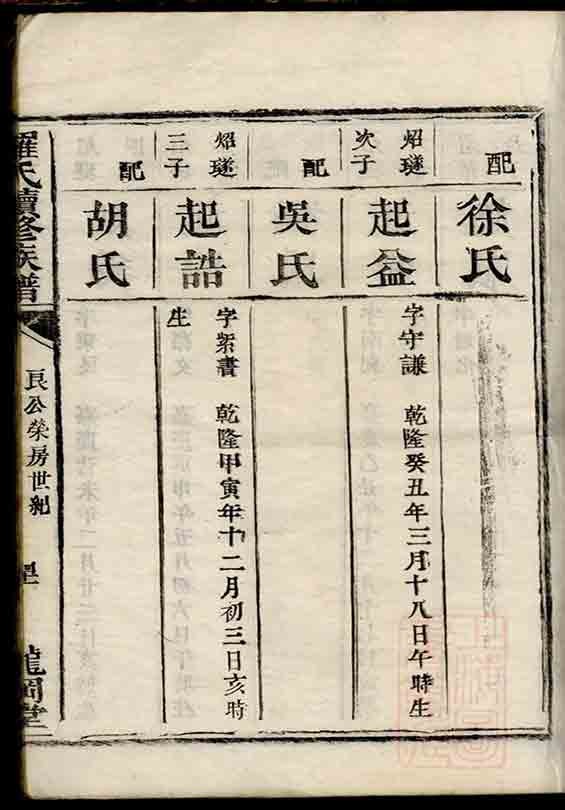 配
徐氏
炤璲
次子
起益
字守謙 乾隆癸丑年三月十八日午時生
配
吳氏
炤璲
三子
起誥
字紫書 乾隆甲寅年十二月初三日亥時
生
配
胡氏
羅氏續修族譜
良公榮房世紀
龍岡堂